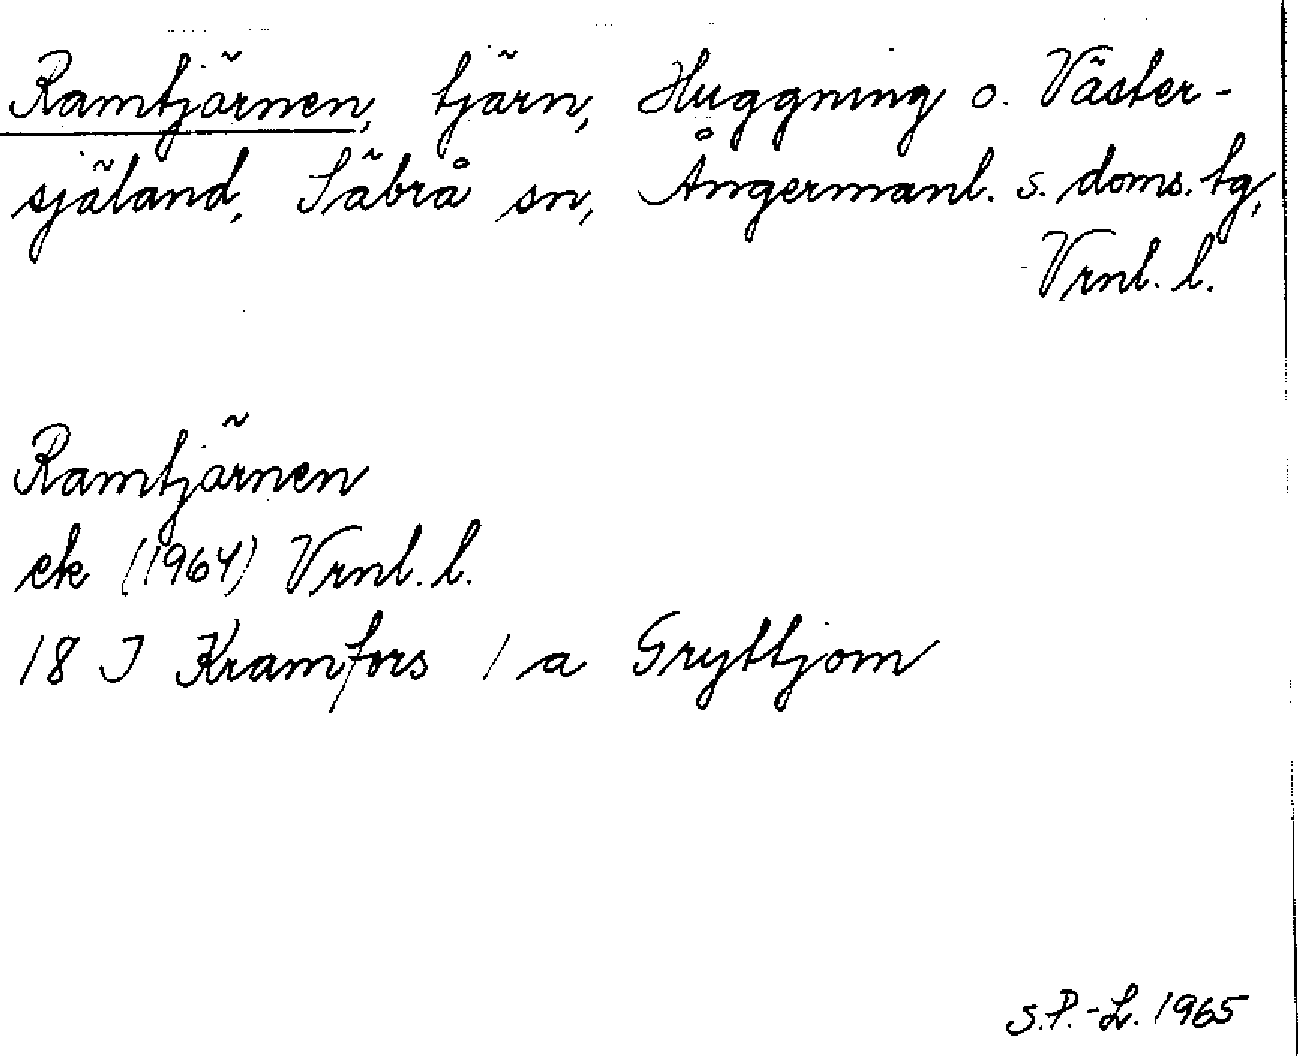 Ramtjärnen, tjärn, Huggning o. Väster-
själand, Säbrå sn, Ångermanl. s. doms. tg,
Vrnl. l.
Ramtjärnen
ek (1964) Vrnl. l.
18 J Kramfors 1 a Gryttjom
S.P.-L. 1965